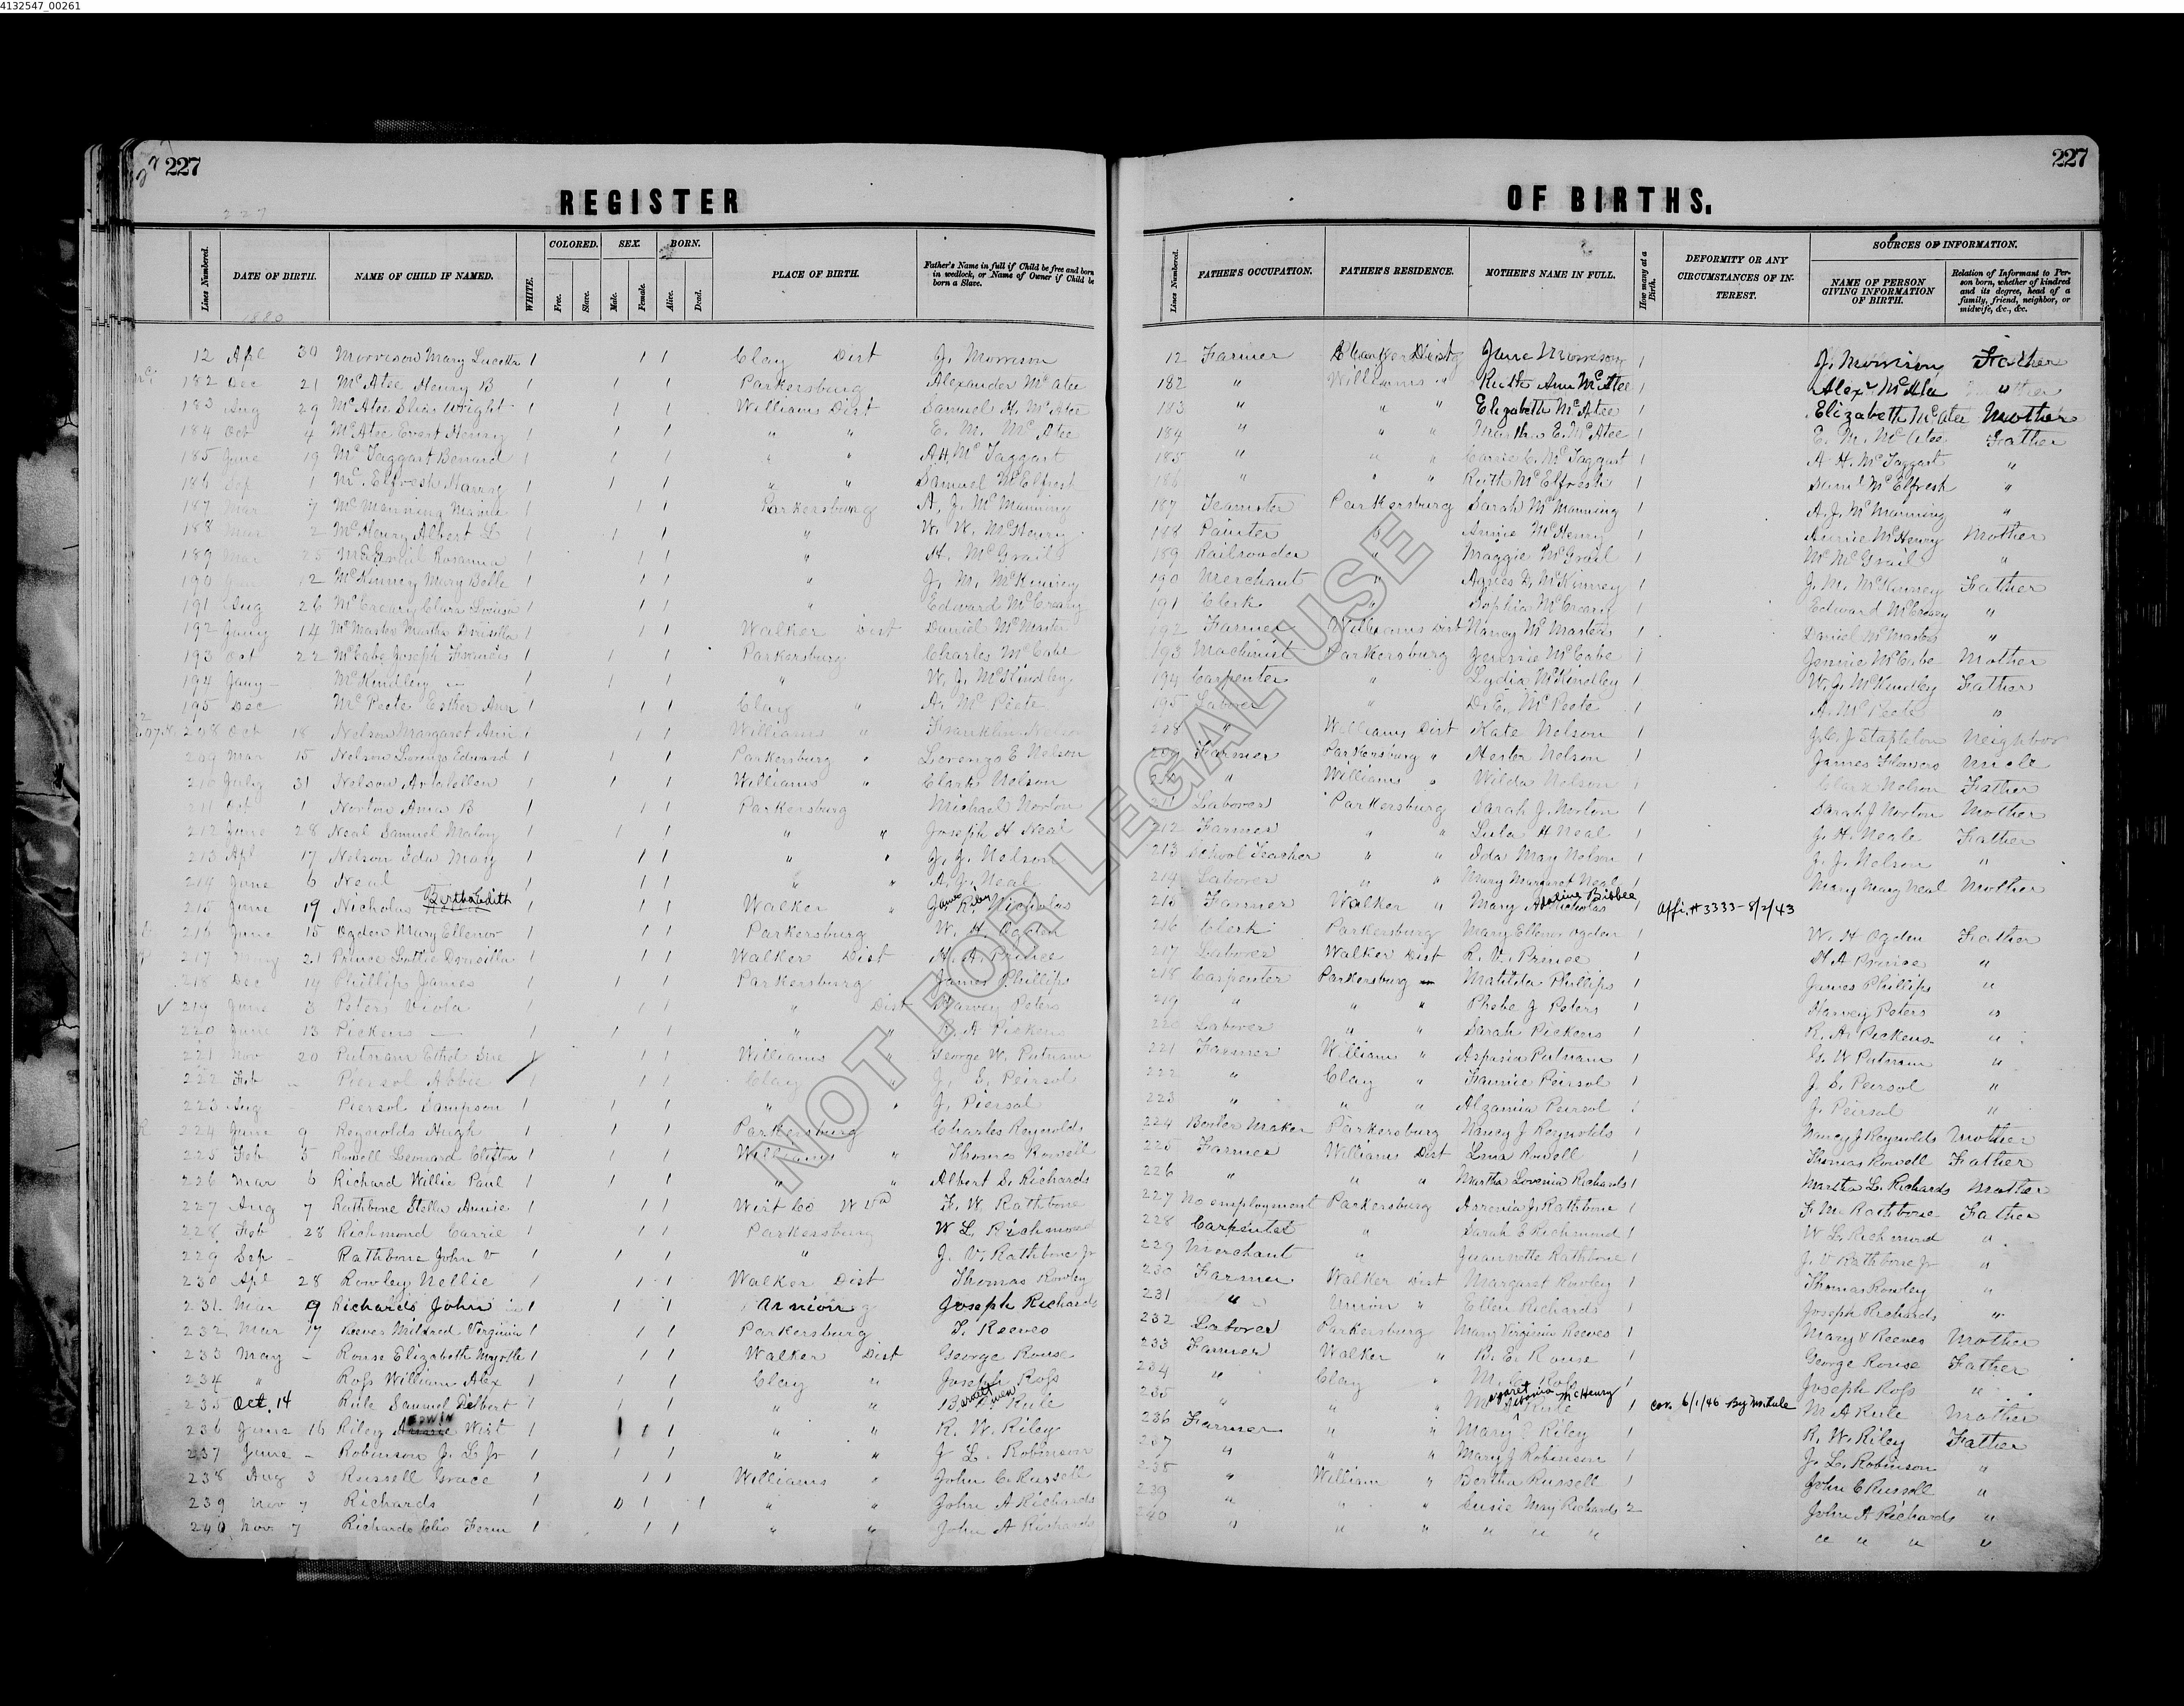 4132547_00261
227
227
REGISTER
OF BIRTHS.
227
Lines Numbered.
DATE OF BIRTH.
NAME OF CHILD IF NAMED.
WHITE.
COLORED.
Free.
Slave.
SEX.
Male.
Female.
BORN.
Alive.
Dead.
PLACE OF BIRTH.
Father's Name in full if Child be free and born in wedlock, or Name of Owner if Child be born a Slave.
Lines Numbered.
FATHER'S OCCUPATION.
FATHER'S RESIDENCE.
MOTHER'S NAME IN FULL.
How many at a Birth.
DEFORMITY OR ANY CIRCUMSTANCES OF INTEREST.
SOURCES OF INFORMATION.
NAME OF PERSON GIVING INFORMATION OF BIRTH.
Relation of Informant to Person born, whether of kindred and its degree, head of a family, friend, neighbor, or midwife, &c., &c.
1880
12 Apl 30 Morrison Mary Lucetta 1 1 1 Clay Dist J. Morrison 12 Farmer Dist Jane Morrison 1 J. Morrison Father
182 Dec 21 McAtee Henry B 1 1 1 Parkersburg Alexander McAtee 182 " Williams " Ruth Ann McAtee 1 Alexr McAtee "
183 Aug 29 McAtee Wright 1 1 1 Williams Dist Samuel H. McAtee 183 " " " Elizabeth McAtee 1 Elizabeth McAtee Mother
184 Oct 4 McAtee Evert Henry 1 1 1 " " E. M. McAtee 184 " " " E. McAtee 1 E. M. McAtee Father
185 June 19 McTaggart Bernard 1 1 1 " " A H. McTaggart 185 " " " Carrie C. McTaggart 1 A. H. McTaggart "
186 Sep 1 McElfresh Harry 1 1 1 " " Samuel McElfresh 186 " " " Ruth McElfresh 1 Saml McElfresh "
187 Mar 7 McManning 1 1 1 Parkersburg A. J. McManning 187 Teamster Parkersburg Sarah McManning 1 A. J. McManning "
188 2 McHenry Albert L 1 1 1 " W. W. McHenry 188 Painter " Annie McHenry 1 Annie McHenry Mother
189 Mar 25 McGrail Rosanna 1 1 1 " H. McGrail 189 Railroader " Maggie McGrail 1 McGrail "
190 12 McKinney Mary Belle 1 1 1 " J. M. McKinney 190 Merchant " Agnes D. McKinney 1 J. M. McKinney Father
191 Aug 26 McCreary Clara Louisa 1 1 1 " Edward McCreary 191 Clerk " Sophia McCreary 1 Edward McCreary "
192 Jany 14 McMaster Martha Drusilla 1 1 1 Walker Dist Daniel McMaster 192 Farmer Williams Dist Nancy McMasters 1 Daniel McMasters "
193 Oct 22 McCabe Joseph Francis 1 1 1 Parkersburg Charles McCabe 193 Machinist Parkersburg McCabe 1 Jennie McCabe Mother
194 Jany - McKindley - 1 1 1 " W. J. McKindley 194 Carpenter " Lydia McKindley 1 W. J. McKindley Father
195 Dec McPeete Esther Ann 1 1 1 Clay " A. McPeete 195 Laborer " D. E. McPeete 1 A. McPeete "
208 Oct 18 Nelson Margaret Ann 1 1 1 Williams " Franklin Nelson 208 " Williams Dist Kate Nelson 1 Stapleton Neighbor
209 Mar 15 Nelson Lorenzo Edward 1 1 1 Parkersburg " Lorenzo E Nelson 209 Farmer Parkersburg " Hester Nelson 1 James Flowers Uncle
210 July 31 Nelson 1 1 1 Williams " Clark Nelson 210 " Williams " Wilda Nelson 1 Clark Nelson Father
211 Oct 1 Norton Anna B 1 1 1 Parkersburg Michael Norton 211 Laborer Parkersburg Sarah J. Norton 1 Sarah J Norton Mother
212 June 28 Neal Samuel 1 1 1 " " Joseph H Neal 212 Farmer " " Lula H Neal 1 J. H. Neale Father
213 Apl 17 Nelson Ida Mary 1 1 1 " " J. J. Nelson 213 School Teacher " " Ida May Nelson 1 J. J. Nelson "
214 June 6 Neal 1 1 1 " " A. J. Neal 214 Laborer " " Mary Margaret Neal 1 Mary Marg Neal Mother
215 June 19 Nicholas Bertha Edith 1 1 1 Walker " James Riley Nicholas 215 Farmer Walker " Mary Bibbee Nicholas 1 Affi. # 3333-8/2/43
216 June 15 Ogden Mary Ellenor 1 1 1 Parkersburg W. H. Ogden 216 Clerk Parkersburg Mary Ellenor Ogden 1 W. H Ogden Father
217 21 Prince Lottie Drusilla 1 1 1 Walker Dist H. A. Prince 217 Laborer Walker Dist R. V. Prince 1 H A Prince "
218 Dec 14 Phillips James 1 1 1 Parkersburg James Phillips 218 Carpenter Parkersburg Matilda Phillips 1 James Phillips "
219 June 3 Peters Viola 1 1 1 " Dist Harvey Peters 219 " " " Phebe J Peters 1 Harvey Peters "
220 June 13 Pickens - 1 1 1 " " R. A. Pickens 220 Laborer " " Sarah Pickens 1 R. A. Pickens "
221 Nov 20 Putnam Ethel Sue 1 1 1 Williams " George W. Putnam 221 Farmer William " Aspasia Putnam 1 G. W Putnam "
222 Feb - Piersol Abbie 1 1 1 Clay " J. S. Peirsol 222 " Clay " Fannie Peirsol 1 J. S. Peirsol "
223 Aug - Piersol Sampson 1 1 1 " " J. Piersol 223 " " " Alzamia Peirsol 1 J. Peirsol "
224 June 9 Reynolds Hugh 1 1 1 Parkersburg Charles Reynolds 224 Boiler Maker Parkersburg Nancy J Reynolds 1 Nancy J Reynolds Mother
225 Feb 5 Rowell Leonard Clifton 1 1 1 Williams " Thomas Rowell 225 Farmer Williams Dist Rowell 1 Thomas Rowell Father
226 Mar 6 Richard Willie Paul 1 1 1 " " Albert S. Richards 226 " " " Martha Lovenia Richards 1 Martha L. Richards Mother
227 Aug 7 Rathbone Stella Annie 1 1 1 Wirt Co W Va F. W. Rathbone 227 No employment Parkersburg J. Rathbone 1 Rathbone Father
228 Feb 28 Richmond Carrie 1 1 1 Parkersburg W L. Richmond 228 Carpenter " Sarah E Richmond 1 W L. Richmond "
229 Sep - Rathbone John V 1 1 1 " J. V. Rathbone Jr 229 Merchant " Rathbone 1 J. V Rathbone Jr "
230 Apl 28 Rowley Nellie 1 1 1 Walker Dist Thomas Rowley 230 Farmer Walker Dist Margaret Rowley 1 Thomas Rowley "
231 Mar 9 Richards John 1 1 1 Joseph Richards 231 " Union " Ellen Richards 1 Joseph Richards "
232 Mar 17 Reeves Mildred Virginia 1 1 1 Parkersburg Reeves 232 Laborer Parkersburg Mary Virginia Reeves 1 Mary V Reeves Mother
233 May - Rouse Elizabeth Myrtle 1 1 1 Walker Dist George Rouse 233 Farmer Walker " B. E. Rouse 1 George Rouse Father
234 " Ross William Alex 1 1 1 Clay " Joseph Ross 234 " Clay " Ross 1 Joseph Ross "
235 Oct. 14 Rule Samuel Delbert 1 1 1 " " Rule 235 " " McHenry Rule 1 Cor. 6/1/46 By M A Rule Mother
236 June 16 Riley Edwin Wirt 1 1 1 " " R. W. Riley 236 Farmer " " Mary Riley 1 R. W. Riley Father
237 June - Robinson J. L. Jr 1 1 1 " " J L. Robinson 237 " " " Mary J Robinson 1 J. L. Robinson "
238 Aug 3 Russell Grace 1 1 1 Williams " John C. Russell 238 " William " Bertha Russell 1 John C Russell "
239 Nov 7 Richards 1 1 1 " " John A Richards 239 " " " Susie May Richards 2 John A Richards "
240 Nov. 7 Richards Fern 1 1 1 " " John A Richards 240 " " " " " " " " " "
NOT FOR LEGAL USE